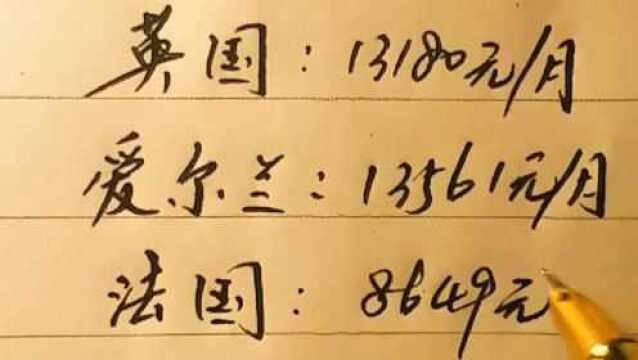 英国：13180元/月
爱尔兰：13561元/月
法国：8649元